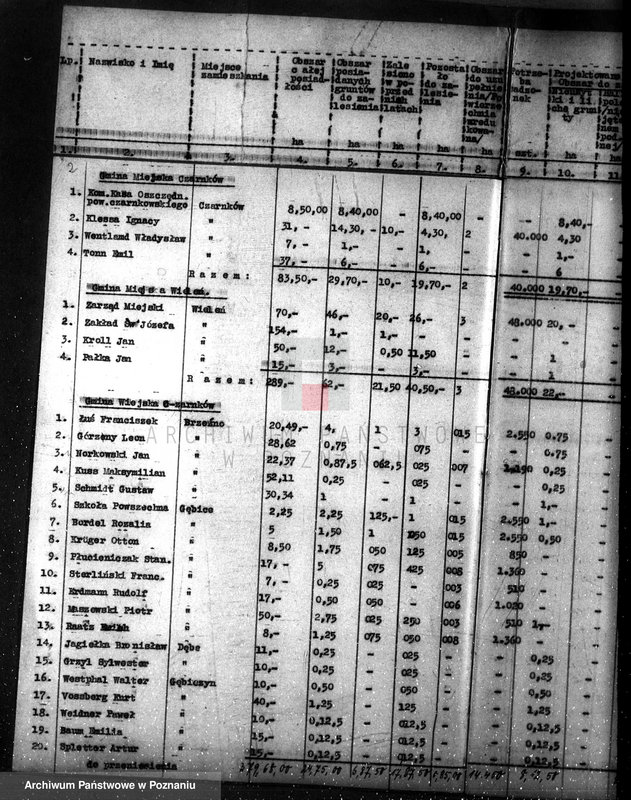 Lp. Nazwisko i Imię Miejsce zamieszkania Obszar całej posiadłości Obszar posiadanych gruntów do zalesienia Zalesiono w poprzednich latach Pozostało do zalesienia
ha ha ha ha ha szt. ha
1. 2. 3. 4. 5. 6. 7. 8. 9. 10. 11
2 Gmina Miejska Czarnków
1. Kom.Kasa Oszczędn.
pow.czarnkowskiego Czarnków 8,50,00 8,40,00 - 8,40,00 - - 8,40,-
2. Klessa Ignacy " 31,- 14,30,- 10,- 4,30, 2 40.000 4,30
3. Wentland Władysław " 7,- 1,- - 1, - - 1,-
4. Tonn Emil " 37,- 6,- - 6,- - - 6
Razem: 83,50,- 29,70,- 10,- 19,70,- 2 40.000 19,70,-
Gmina Miejska Wieleń.
1. Zarząd Miejski Wieleń 70,- 46,- 20,- 26,- 3 48.000 20,-
2. Zakład Św Józefa " 154,- 1,- 1,- - - - -
3. Kroll Jan " 50,- 12,- 0,50 11,50 - - 1
4. Pałka Jan " 15,- 3,- - 3,- - - 1
Razem: 289,- 62,- 21,50 40,50,- 3 48.000 22,-
Gmina Wiejska C-zarnków
1. Łuś Franciszek Brzeźno 20,49,- 4, 1 3 015 2.550 0,75
2. Górzeny Leon " 28,62 0,75 - 075 - - 0,75
3. Norkowski Jan " 22,37 0,87,5 062,5 025 007 1.190 0,25
4. Kuss Maksymilian " 52,11 0,25 - 025 - - 0,25
5. Schmidt Gustaw " 30,34 1 - 1 - - 1,-
6. Szkoła Powszechna Gębice 2,25 2,25 125,- 1 015 2.550 1,-
7. Bordel Rozalia " 5 1,50 1 050 015 2.550 0,50
8. Krüger Otton " 8,50 1,75 050 125 005 850 -
9. Płucieniczak Stan. " 17,- 5 075 425 008 1.360 -
10. Sterliński Franc. " 7,- 0,25 025 - 003 510 -
11. Erdmann Rudolf " 17,- 0,50 050 - 006 1.020 -
12. Maszewski Piotr " 50,- 2,75 025 250 003 510 1,-
13. Raatz " 8,- 1,25 075 050 008 1.360 -
14. Jagiełka Bronisław Dębe 11,- 0,25 - 025 - - 0,25
15. Grzyl Sylwester " 10,- 0,25 - 025 - - 0,25
16. Westphal Walter Gębiczyn 10,- 0,50 - 050 - - 0,50
17. Vossberg Kurt " 40,- 1,25 - 125 - - 1,25
18. Weidner Paweł " 10,- 0,12,5 - 012,5 - - 0,12,5
19. Baum Emilia " 15,- 0,12,5 - 012,5 - - 0,12,5
20. Spletter Artur " 15,- 0,12,5 - 012,5 - - 0,12,5
do przeniesienia
ARCHIWUM PAŃSTWOWE
W POZNANIU
Archiwum Państwowe w Poznaniu